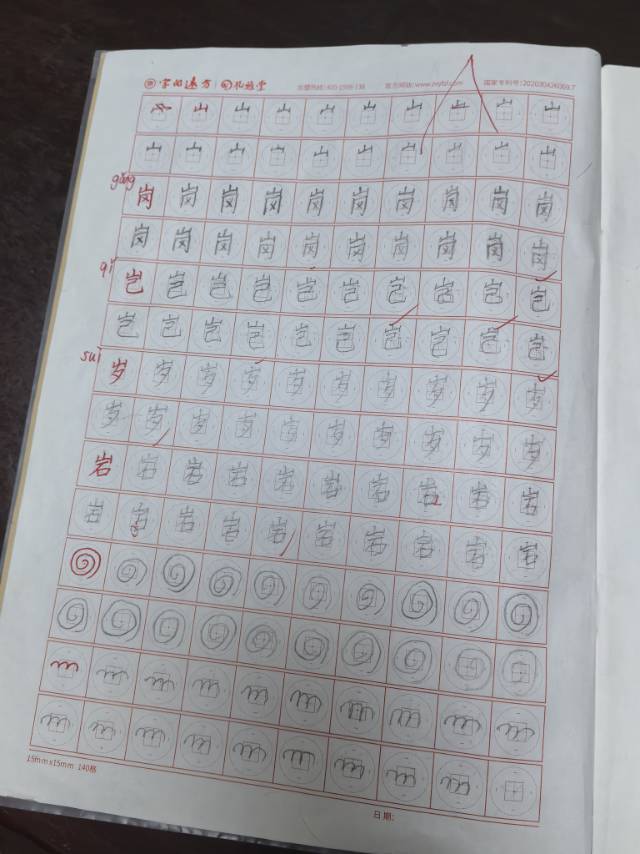 国家专利号:202030426069.7
山 山 山 山 山 山 山 山 山
山 山 山 山 山 山 山 山 山 山
gǎng 岗 岗 岗 岗 岗 岗 岗 岗 岗 岗
岗 岗 岗 岗 岗 岗 岗 岗 岗 岗
qǐ 岂 岂 岂 岂 岂 岂 岂 岂 岂 岂
岂 岂 岂 岂 岂 岂 岂 岂 岂 岂
suì 岁 岁 岁 岁 岁 岁 岁 岁 岁 岁
岁 岁 岁 岁 岁 岁 岁 岁 岁 岁
岩 岩 岩 岩 岩 岩 岩 岩 岩 岩
岩 岩 岩 岩 岩 岩 岩 岩 岩 岩
15mm×15mm 140格
日期: